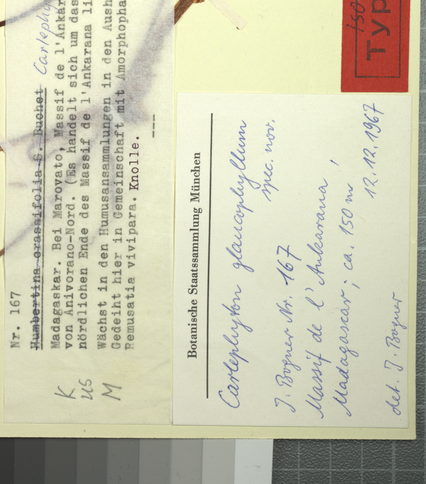 Nr. 167
Humbertina crassifolia S. Buchet Carleph
Madagaskar. Bei Marovato, Massif de l'Ankar
von Anivorano-Nord. (Es handelt sich um das
nördlichen Ende des Massif de l'Ankarana li
Wächst in den Humusansammlungen in den Aush
Gedeiht hier in Gemeinschaft mit Amorphopha
Remusatia vivipara. Knolle.
---
K
us
M
Iso
Typ
Botanische Staatssammlung München
Carlephyton glaucophyllum
spec. nov.
J. Bogner Nr. 167
Massif de l'Ankarana,
Madagascar; ca. 150 m
12.12.1967
det. J. Bogner